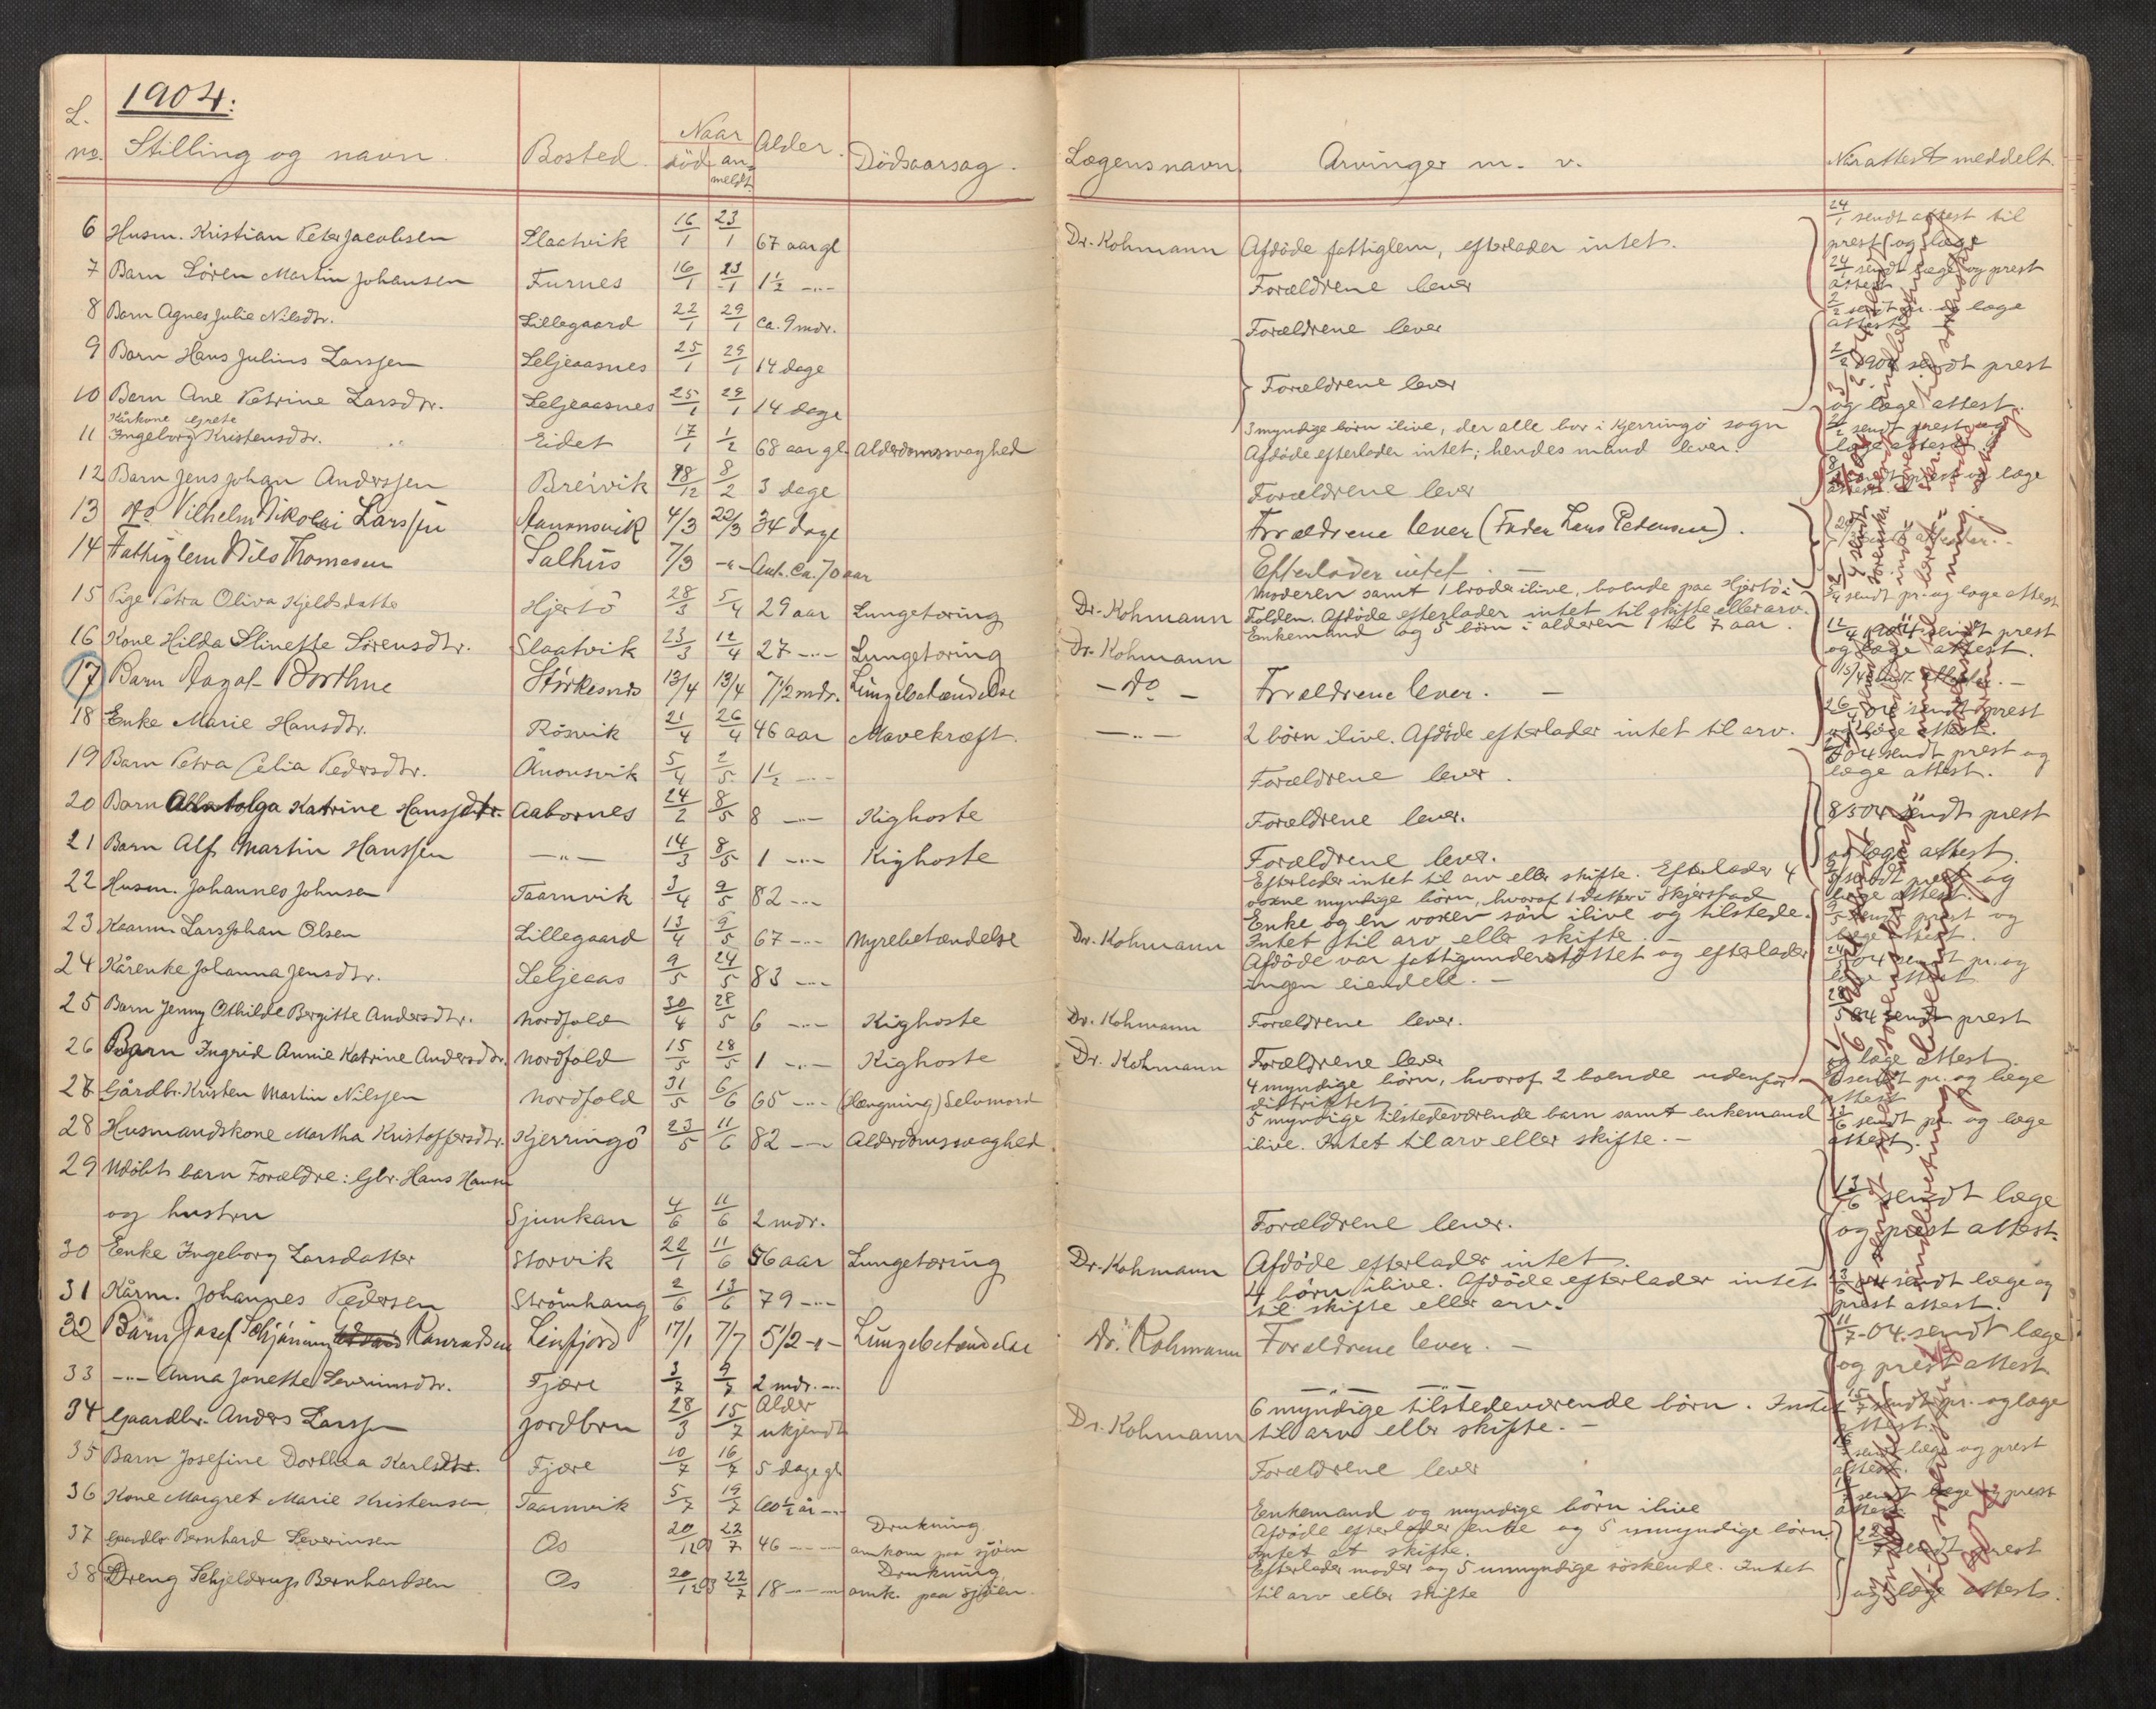 1904.
L. no. Stilling og navn. Bosted. Naar död an-meldt. Alder. Dödsaarsag. Lægens navn. Arvinger m. v. Naar attest meddelt.
6 Husm. Kristian Peter Jacobsen Slaatvik 16/1 23/1 67 aar gl Dr. Kohmann Afdöde fattiglem, efterlader intet. 24/1 sendt attest til prest og læge
7 Barn Sören Martin Johansen Furnes 16/1 23/1 1½ -"- Forældrene lever 24/1 sendt læge og prest attest
8 Barn Agnes Julie Nilsdtr. Lillegaard 22/1 29/1 ca. 9 mdr. Forældrene lever 2/2 sendt pr. og læge attest
9 Barn Hans Julius Larssen Leljeaasnes 25/1 29/1 14 dage
Forældrene lever 2/2 1904 sendt prest og læge attest.
10 Barn Ane Petrine Larsdtr. Leljeaasnes 25/1 29/1 14 dage
Kårkone Grete
11 Ingeborg Kristensdtr. Eidet 17/1 1/2 68 aar gl. Alderdomssvaghed 3 myndige börn ilive, der alle bor i Kjerringö sogn
Afdöde efterlader intet; hendes mand lever. 2/2 sendt prest og læge attest
12 Barn Jens Johan Anderssen Breivik 18/12 8/2 3 dage Forældrene lever 8/2 sendt prest og læge attest
13 do Vilhelm Nikolai Larssen Aanonsvik 4/3 22/3 34 dage Forældrene lever (Fader Lars Pedersen).
14 Fattiglem Nils Thomesen Salhus 7/3 -"- Ant. Ca. 70 aar Efterlader intet. —
15 Pige Petra Oliva Kjeldsdatter Hjertö 28/3 5/4 29 aar Lungetæring Dr. Kohmann Moderen samt 1 broder ilive, boende paa Hjertö i
Folden. Afdöde efterlader intet til skifte eller arv. sendt pr. og læge attest
16 Kone Hilda Elinette Sörensdtr. Slaatvik 23/3 12/4 27 -"- Lungetæring Dr. Kohmann Enkemand og 5 börn i alderen 1 til 7 aar. 12/4 1904 sendt prest og læge attest.
17 Barn Dagaf Borthne Störkesnes 13/4 13/4 7½ mdr. Lungebetændelse - do - Forældrene lever. —
18 Enke Marie Hansdtr. Rösvik 21/4 26/4 46 aar Mavekræft. -"- 2 börn ilive. Afdöde efterlader intet til arv. 26/4 04 sendt prest og læge attest.
19 Barn Petra Celia Pedersdtr. Ånonsvik 5/4 2/5 1½ -"- Forældrene lever. 04 sendt prest og læge attest.
20 Barn Katrine Hanssdtr. Aabornes 24/2 8/5 8 -"- Kighoste Forældrene lever. 8/5 04 sendt prest
21 Barn Alf Martin Hanssen -"- 14/3 8/5 1 -"- Kighoste Forældrene lever. og læge attest.
22 Husm. Johannes Johnsen Taarnvik 3/4 9/5 82 -"- Efterlader intet til arv eller skifte. Efterlader 4
voxne myndige börn, hvoraf 1 datter i Skjerstad sendt prest og læge attest.
23 Kaarm. Lars Johan Olsen Lillegaard 13/4 9/5 67 -"- Nyrebetændelse Dr. Kohmann Enke og en voxen sön ilive og tilstede.
Intet til arv eller skifte. — 9/5 sendt prest og læge attest.
24 Kårenke Johanna Jensdtr. Leljeaas 9/5 24/5 83 -"- Afdöde var fattigunderstöttet og efterlader
ingen eiendele. — 24/5 04 sendt pr. og læge attest
25 Barn Jenny Othilde Bergitte Andersdtr. Nordfold 30/4 28/5 6 -"- Kighoste Dr. Kohmann Forældrene lever. 28/5 04 sendt prest
26 Barn Ingrid Annie Katrine Andersdtr. Nordfold 15/5 28/5 1 -"- Kighoste Dr. Kohmann Forældrene lever og læge attest.
27 Gårdbr. Kristen Martin Nilssen Nordfold 31/5 6/6 65 -"- (Hængning) Selvmord 4 myndige börn, hvoraf 2 boende udenfor
distriktet. sendt pr. og læge attest
28 Husmandskone Martha Kristoffersdtr. Kjerringö 23/5 11/6 82 -"- Alderdomssvaghed 5 myndige tilstedeværende barn samt enkemand
ilive. Intet til arv eller skifte. — sendt pr. og læge attest.
29 Udöbt barn Forældre: Gbr. Hans Hansen
og hustru Sjunkan 4/6 11/6 2 mdr. Forældrene lever. 13/6 sendt læge og prest attest.
30 Enke Ingeborg Larsdatter Storvik 22/1 11/6 56 aar Lungetæring Dr. Kohmann Afdöde efterlader intet.
31 Kårm. Johannes Pedersen Strömhaug 2/6 13/6 79 -"- 4 börn ilive. Afdöde efterlader intet
til skifte eller arv. 13/6 04 sendt læge og prest attest.
32 Barn Josef Schjåning Konradsen Leinfjord 17/1 7/7 5½ -"- Lungebetændelse Dr. Kohmann Forældrene lever. — 11/7-04. sendt læge
33 -"- Anna Jonette Severinsdtr. Fjære 3/7 9/7 2 mdr. -"- -"- og prest attest
34 Gaardbr. Anders Larssen Jordbru 28/3 15/7 Alder ukjendt Dr. Kohmann 6 myndige tilstedeværende börn. Intet
til arv eller skifte. — 15/7 sendt pr. og læge attest.
35 Barn Josefine Dorthea Karlsdtr. Fjære 10/7 16/7 5 dage gl. Forældrene lever sendt læge og prest attest.
36 Kone Margret Marie Kristensen Taarnvik 5/7 19/7 60½ år -"- Enkemand og myndige börn ilive sendt læge og prest attest.
37 Gaardbr. Bernhard Severinsen Os 20/12 03 22/7 46 -"- Drukning omkom paa sjöen Afdöde efterlader enke og 5 umyndige börn.
Intet at skifte. 22/7 sendt prest
38 Dreng Schjeldrup Bernhardsen Os 20/12 03 22/7 18 -"- Drukning, omk. paa sjöen. Efterlader moder og 5 umyndige söskende. Intet
til arv eller skifte og læge attest.